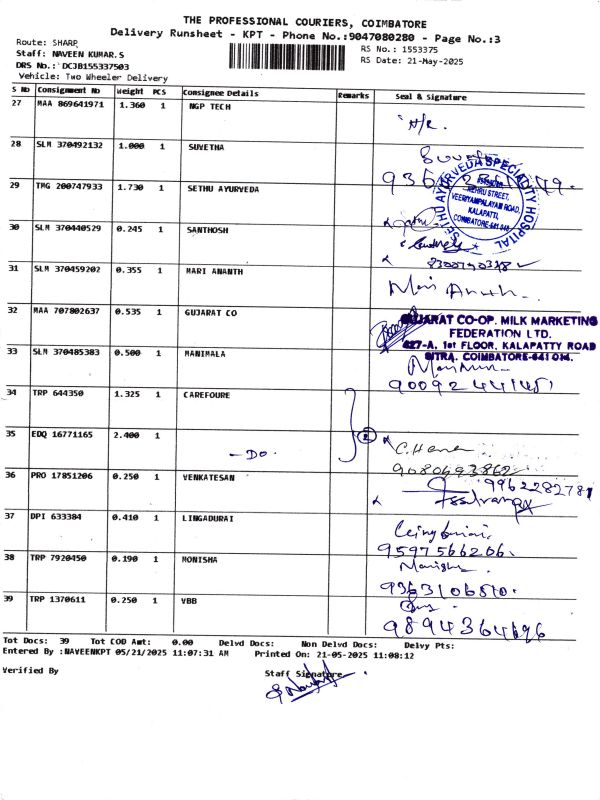 THE PROFESSIONAL COURIERS, COIMBATORE
Delivery Runsheet - KPT - Phone No.:9047080280 - Page No.:3
Route: SHARP
RS No.: 1553375
Staff: NAVEEN KUMAR.S
RS Date: 21-May-2025
DRS No.: DCJB155337503
Vehicle: Two Wheeler Delivery
S No Consignment No Weight PCS Consignee Details Remarks Seal & Signature
27 MAA 869641971 1.360 1 NGP TECH
28 SLM 370492132 1.000 1 SUVETHA
29 TMG 200747933 1.730 1 SETHU AYURVEDA
SETHU AYURVEDHA SPECIALITY HOSPITAL
NEHRU STREET,
VEERIYAMPALAYAM ROAD,
KALAPATTI,
COIMBATORE-641 048
30 SLM 370440529 0.245 1 SANTHOSH
31 SLM 370459202 0.355 1 MARI ANANTH
Mari Ananth
32 MAA 707802637 0.535 1 GUJARAT CO
GUJARAT CO-OP. MILK MARKETING
FEDERATION LTD.
827-A, 1st FLOOR, KALAPATTY ROAD
SITRA, COIMBATORE-641 014.
33 SLM 370485383 0.500 1 MANIMALA
34 TRP 644350 1.325 1 CAREFOURE
35 EDQ 16771165 2.400 1
-DO-
2
36 PRO 17851206 0.250 1 VENKATESAN
9962282781
37 DPI 633384 0.410 1 LINGADURAI
9597566206.
38 TRP 7920450 0.190 1 MONISHA
Monisha
9363106810.
39 TRP 1370611 0.250 1 VBB
9894364696
Tot Docs: 39 Tot COD Amt: 0.00 Delvd Docs: Non Delvd Docs: Delvy Pts:
Entered By :NAVEENKPT 05/21/2025 11:07:31 AM Printed On: 21-05-2025 11:08:12
Verified By
Staff Signature